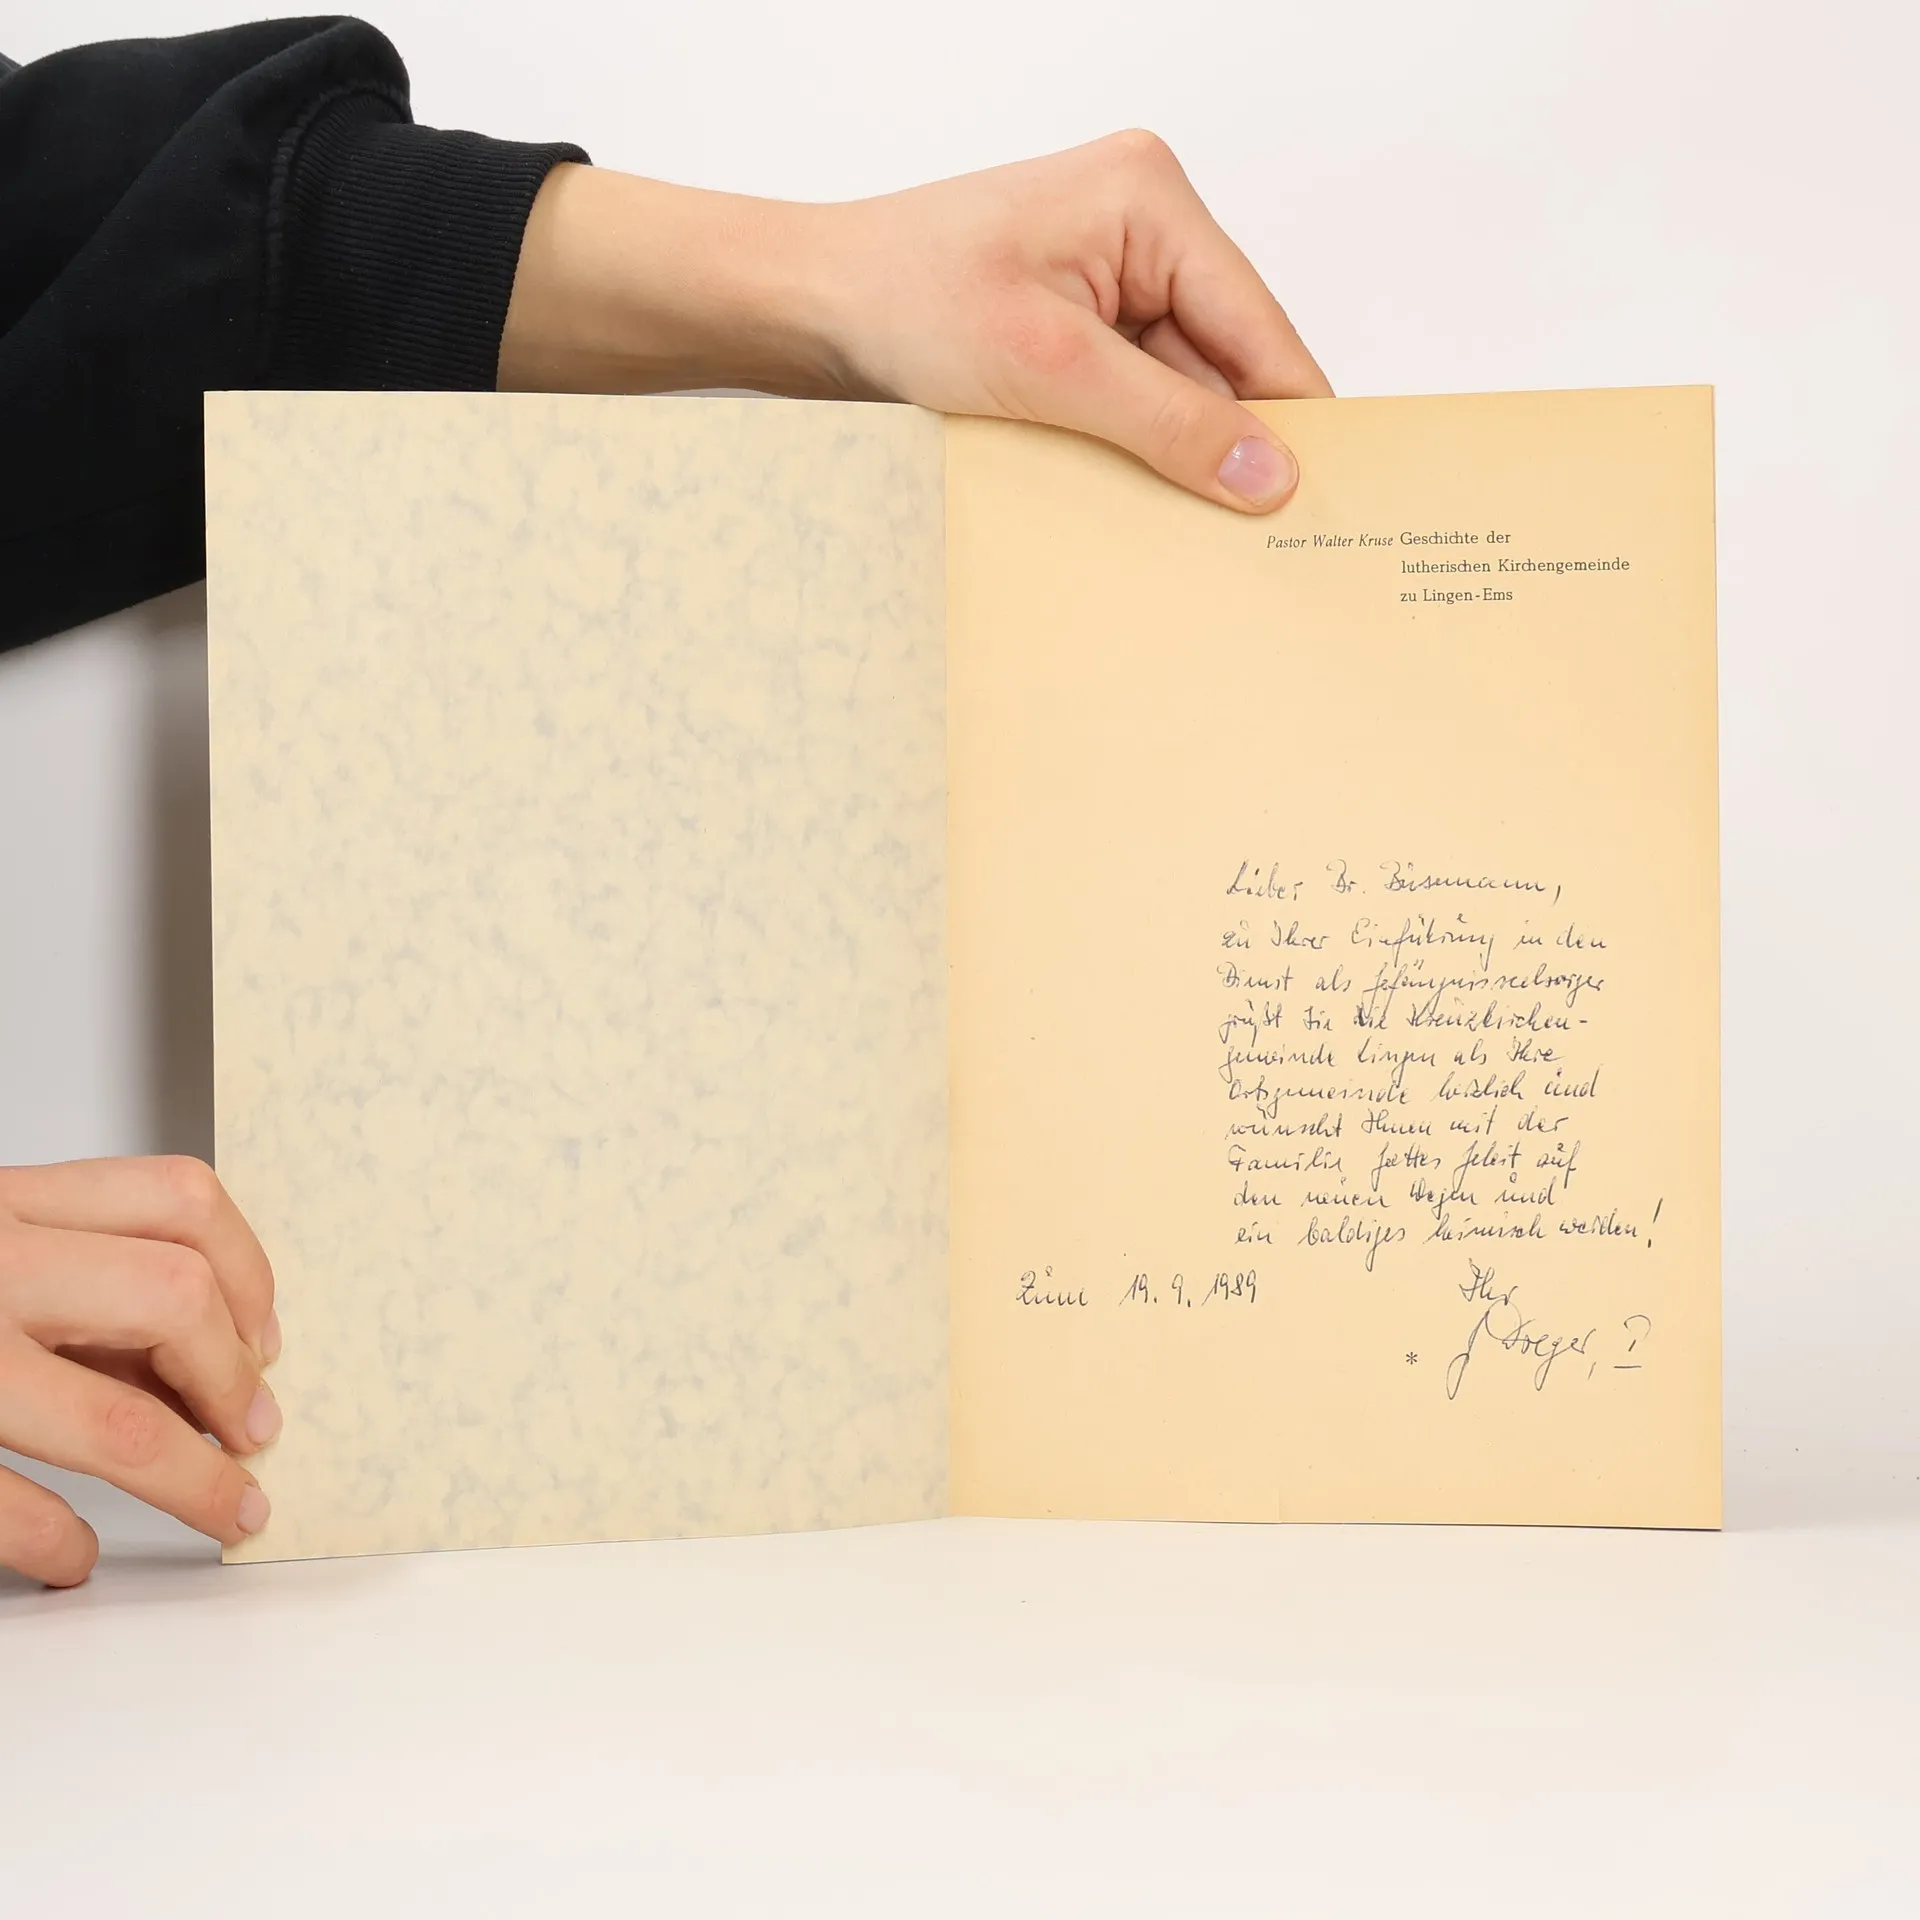 Pastor Walter Kruse Geschichte der
lutherischen Kirchengemeinde
zu Lingen-Ems
Lieber Br. Büsemann,
zu Ihrer Einführung in den
Dienst als Gefängnisseelsorger
grüßt Sie die Kreuzkirchen-
gemeinde Lingen als Ihre
Ortsgemeinde herzlich und
wünscht Ihnen mit der
Familie Gottes Geleit auf
den neuen Wegen und
ein baldiges heimisch werden!
Zum 19. 9. 1989
Ihr
*